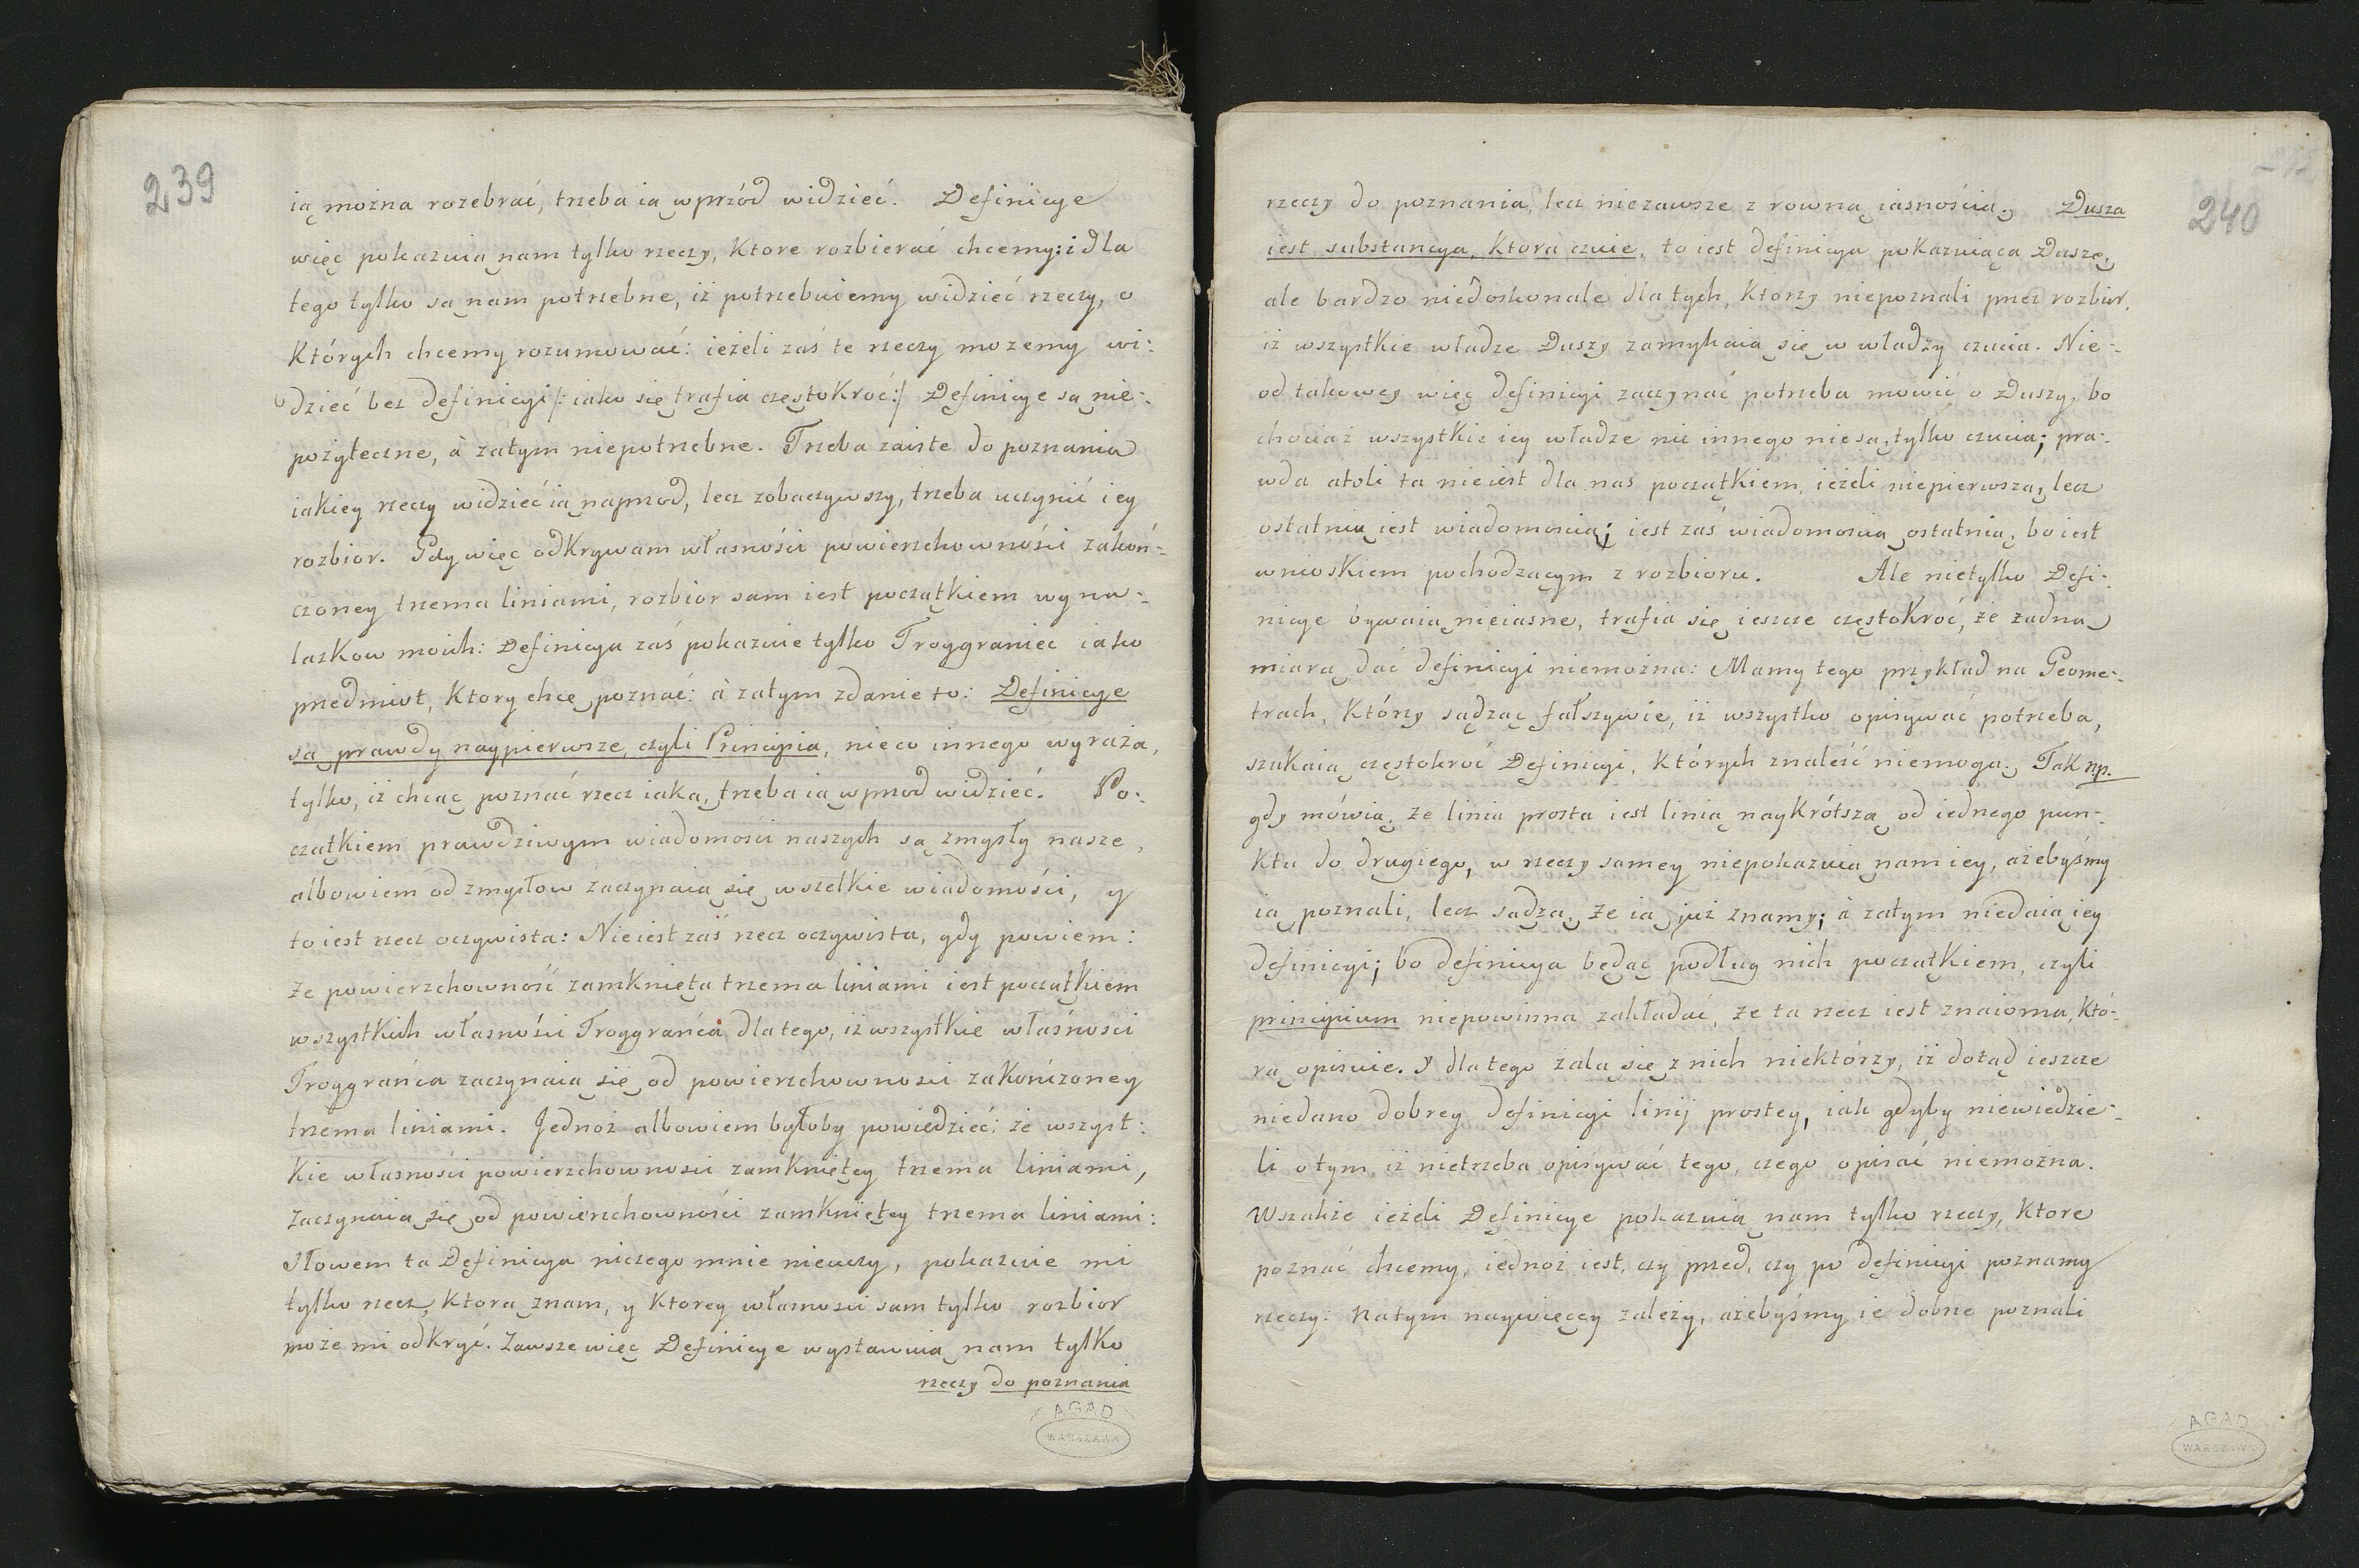 239
ią można rozebrać, trzeba ią wprzód widzieć. Definicye
więc pokazuią nam tylko rzeczy, Ktore rozbierać chcemy: i dla
tego tylko są nam potrzebne, iż potrzebuiemy widzieć rzeczy, o
Których chcemy rozumować: ieżeli zaś te rzeczy mozemy wi-:
dzieć bez definicyi /: iako się trafia częstoKroć :/ Definicye są nie-:
pożyteczne, à zatym niepotrzebne. Trzeba zaiste do poznania
iakiey rzeczy widzieć ią naprzod, lecz zobaczywszy, trzeba uczynić iey
rozbior. Gdy więc odKrywam własności powierzchowności zakoń-:
czoney trzema liniami, rozbior sam iest początkiem wyna-:
lazkow moich: Definicya zaś pokazuie tylko Troygraniec iako
przedmiot, Ktory chcę poznać: à zatym zdanie to: Definicye
są prawdy naypierwsze, czyli Principia, nieco innego wyraża,
tylko, iż chcąc poznać rzecz iaką, trzeba ią wprzod widzieć. Po-:
czątkiem prawdziwym wiadomości naszych są zmysły nasze,
albowiem od zmysłow zaczynaią się wszelkie wiadomości, y
to iest rzecz oczywista: Nieiest zaś rzecz oczywista, gdy powiem:
że powierzchowność zamknięta trzema liniami iest początkiem
wszystkich własności Troygrańca dlatego, iż wszystkie własnosci
Troygrańca zaczynaią się od powierzchownosci zakończoney
trzema liniami. Jednoż albowiem byłoby powiedzieć: że wszyst:
Kie własności powierzchownosci zamkniętey trzema liniami,
zaczynaią się od powierzchowności zamkniętey trzema liniami:
Słowem ta Definicya niczego mnie nieuczy, pokazuie mi
tylko rzecz, Ktorą znam, y Ktorey własnosci sam tylko rozbior
może mi odKryć. Zawsze więc Definicye wystawuią nam tylko
rzeczy do poznania
AGAD
WARSZAWA
240
rzeczy do poznania, lecz niezawsze z rowną iasnością. Dusza
iest substancya, Ktora czuie, to iest definicya pokazuiąca Duszę,
ale bardzo niedoskonale dla tych, Ktorzy niepoznali przez rozbior,
iż wszystkie władze Duszy zamykaią się w władzy czucia. Nie-:
od takowey więc definicyi zaczynać potrzeba mowić o Duszy, bo
chociaż wszystkie iey władze nic innego nie są, tylko czucia; pra-:
wda atoli ta nieiest dla nas początkiem, ieżeli niepierwszą, lecz
ostatnią iest wiadomoscią; iest zaś wiadomoscią ostatnią, bo iest
wnioskiem pochodzącym z rozbioru. Ale nietylko Defi-:
nicye bywaią nieiasne, trafia się ieszcze częstoKroć, że żadną
miarą dać definicyi niemożna: Mamy tego przykład na Geome-:
trach, Którzy sądząc fałszywie, iż wszystko opisywać potrzeba,
szukaią częstokroć Definicyi, Których znaleść niemogą. Tak np.
gdy mówią, że linia prosta iest linią naykrótszą od iednego pun-:
Ktu do drugiego, w rzeczy samey niepokazuią nam iey, ażebyśmy
ią poznali, lecz sądzą, że ią już znamy; à zatym niedaią iey
definicyi; bo definicya będąc podług nich początkiem, czyli
principium niepowinna zakładać, że ta rzecz iest znaioma, Któ-:
rą opisuie. y dlatego żalą się z nich niektórzy, iż dotąd ieszcze
niedano dobrey definicyi linij prostey, iak gdyby niewiedzie-:
li o tym, iż nietrzeba opisywać tego, czego opisać niemożna.
Wszakże ieżeli Definicye pokazuią nam tylko rzeczy, Ktore
poznać chcemy, iednoż iest, czy przed, czy po definicyi poznamy
rzeczy: Natym naywięcey zależy, ażebyśmy ie dobrze poznali
AGAD
WARSZAWA